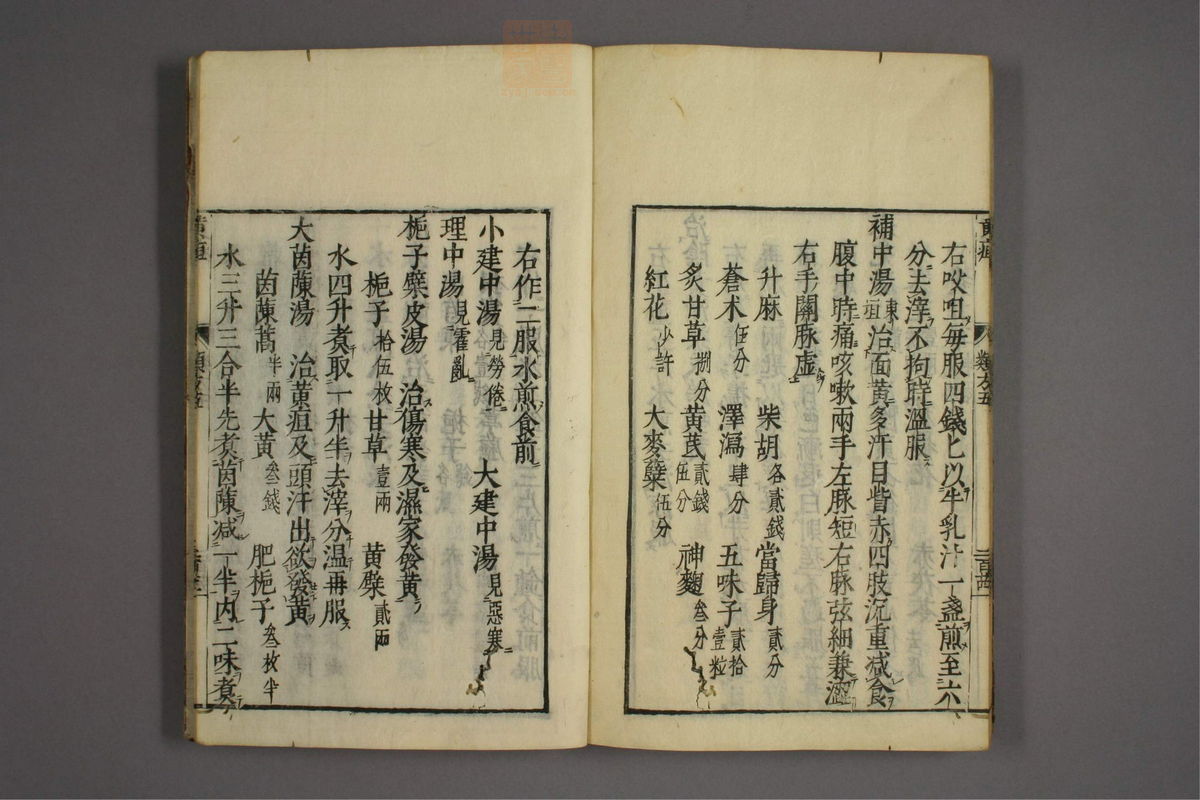 右㕮咀每服四錢匕以牛乳汁一盞煎至六
分去滓不拘時溫服
補中湯東垣治面黃多汗目眥赤四肢沉重减食
腹中時痛咳嗽兩手左脉短右脉弦細兼澁
右手關脉虛
升麻 柴胡各貳錢 當歸身貳分
蒼朮伍分 澤瀉肆分 五味子貳拾壹粒
炙甘草捌分 黃芪貳錢伍分 神麴叁分
紅花少許 大麥蘖伍分
右作二服水煎食前
小建中湯見勞倦 大建中湯見惡寒
理中湯見霍亂
梔子蘗皮湯 治傷寒及濕家發黃
梔子拾伍枚 甘草壹兩 黃蘗貳兩
水四升煮取一升半去滓分溫再服
大茵蔯湯 治黃疸及頭汗出欲發黃
茵蔯蒿半兩 大黃叁錢 肥梔子叁枚半
水三升三合半先煮茵蔯减一半內二味煮